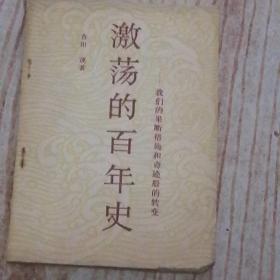 吉田 茂著
激荡的百年史
——我们的果断措施和奇迹般的转变